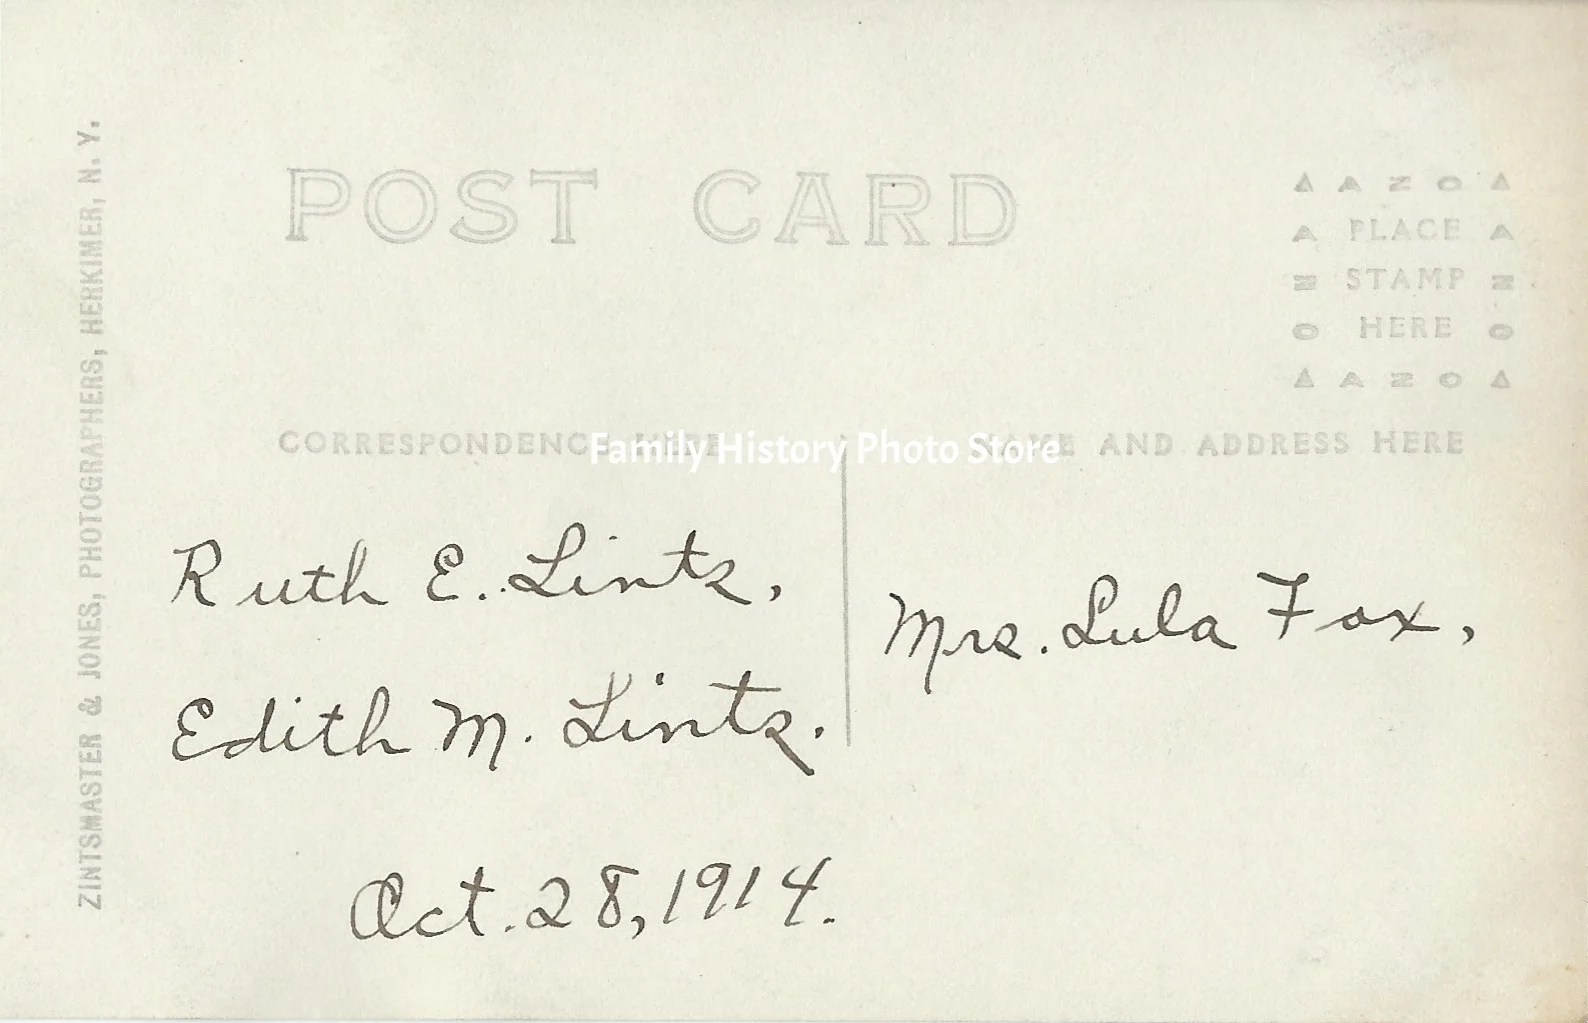 ZINTSMASTER & JONES, PHOTOGRAPHERS, HERKIMER, N. Y.
POST CARD
AZO
PLACE
STAMP
HERE
AZO
CORRESPONDENCE HERE
NAME AND ADDRESS HERE
Family History Photo Store
Ruth E. Lintz,
Edith M. Lintz.
Oct. 28, 1914.
Mrs. Lula Fox,